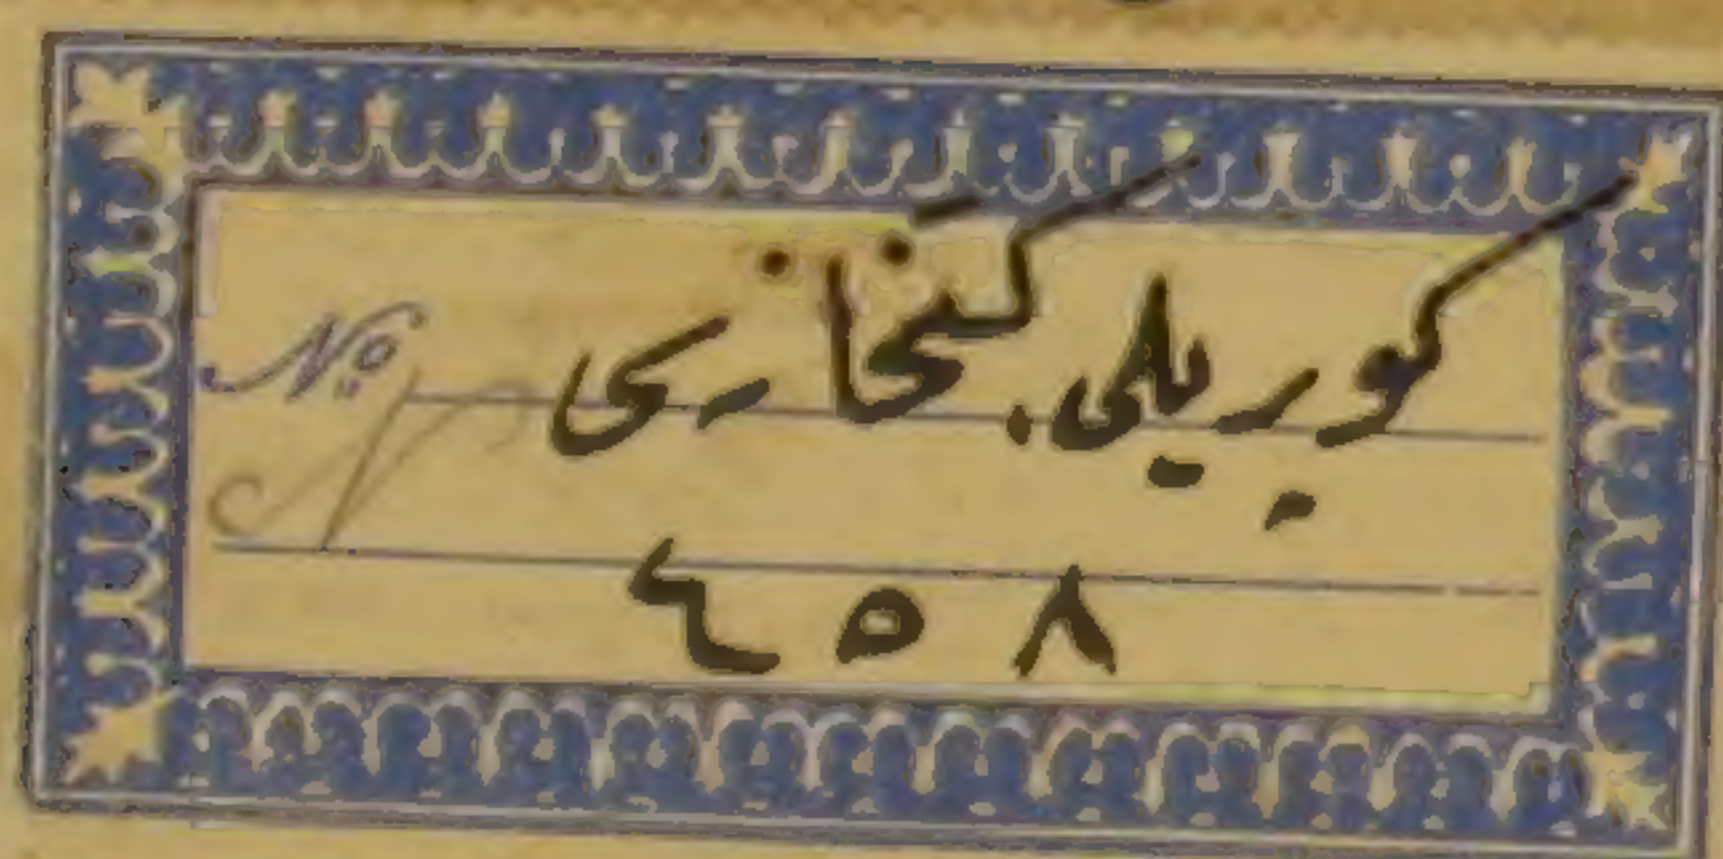 No كوپريلى كتبخانه سى
٤٥٨